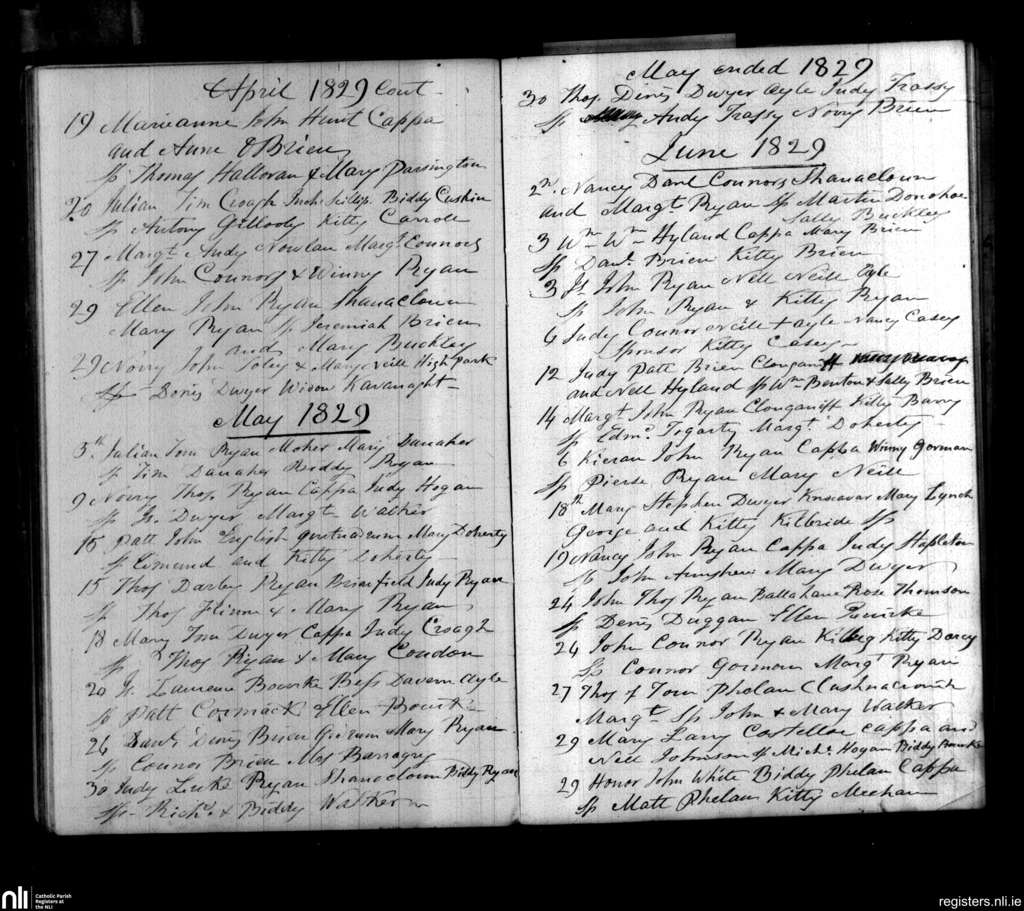 April 1829 Cont
19 Marieanne John Hunt Cappa
and Anne OBrien
Sp Thomas Halloran & Mary Passington
20 Julian Tim Croagh Inch Biddy Cushin
Sp Antony Gilloody Kitty Carroll
27 Margt Andy Nowlan Margt Connors
Sp John Connors & Winny Ryan
29 Ellen John Ryan Shanaclown
Mary Ryan Sp Jeremiah Brien
and Mary Buckley
29 Norry John Foley & Mary Neill High park
Sp Denis Dwyer Widow Kavanaght
May 1829
5th Julian Tom Ryan Moher Mary Danaher
Sp Tim Danaher Biddy Ryan
9 Norry Thos Ryan Cappa Judy Hogan
Sp Js Dwyer Margt Walker
15 Patt John English Mary Doherty
Sp Edmund and Kitty Doherty
15 Thos Darby Ryan Brianfield Judy Ryan
Sp Thos Flinn & Mary Ryan
18 Mary Tom Dwyer Cappa Judy Croagh
Sp Thos Ryan & Mary Condon
20 Js Laurence Bourke Bess Davern Ayle
Sp Patt Cormack Ellen Bourke
26 Danl Denis Brien Mary Ryan
Sp Connor Brien Mos Barragry
30 Judy Luke Ryan Shanaclown Biddy Ryan
Sp Richd & Biddy Walker
May ended 1829
30 Thos Denis Dwyer Ayle Judy Trassy
Sp Andy Trassy Norry Brien
June 1829
2n Nancy Danl Connors Shanaclown
and Margt Ryan Sp Martin Donohoe
Sally Buckley
3 Wm Wm Hyland Cappa Mary Brien
Sp Danl Brien Kitty Brien
3 Js John Ryan Nell Neill Ayle
Sp John Ryan & Kitty Ryan
6 Judy Connor Neill Ayle Nancy Casey
Sponsor Kitty Casey
12 Judy Patt Brien Clouganiff
and Nell Hyland Sp Wm Benton & Sally Brien
14 Margt John Ryan Clouganiff Kitty Barry
Sp Edmd Fogarty Margt Doherty
6 Kieran John Ryan Cappa Winny Gorman
Sp Pierse Ryan Mary Neill
18th Mary Stephen Dwyer Knocavar Mary Lynch
George and Kitty Kilbride Sp
19 Nancy John Ryan Cappa Judy Stapleton
Sp John Mary Dwyer
24 John Thos Ryan Ballahane Rose Thomson
Sp Denis Duggan Ellen Rourke
24 John Connor Ryan Kilbeg Kitty Darcy
Sp Connor Gorman Margt Ryan
27 Thos of Tom Phelan
Margt Sp John & Mary Walker
29 Mary Lary Costelloe Cappa and
Nell Johnson Sp Michl Hogan Biddy Bourke
29 Honor John White Biddy Phelan Cappa
Sp Matt Phelan Kitty Meehan
nli
Catholic Parish
Registers at
the NLI
registers.nli.ie